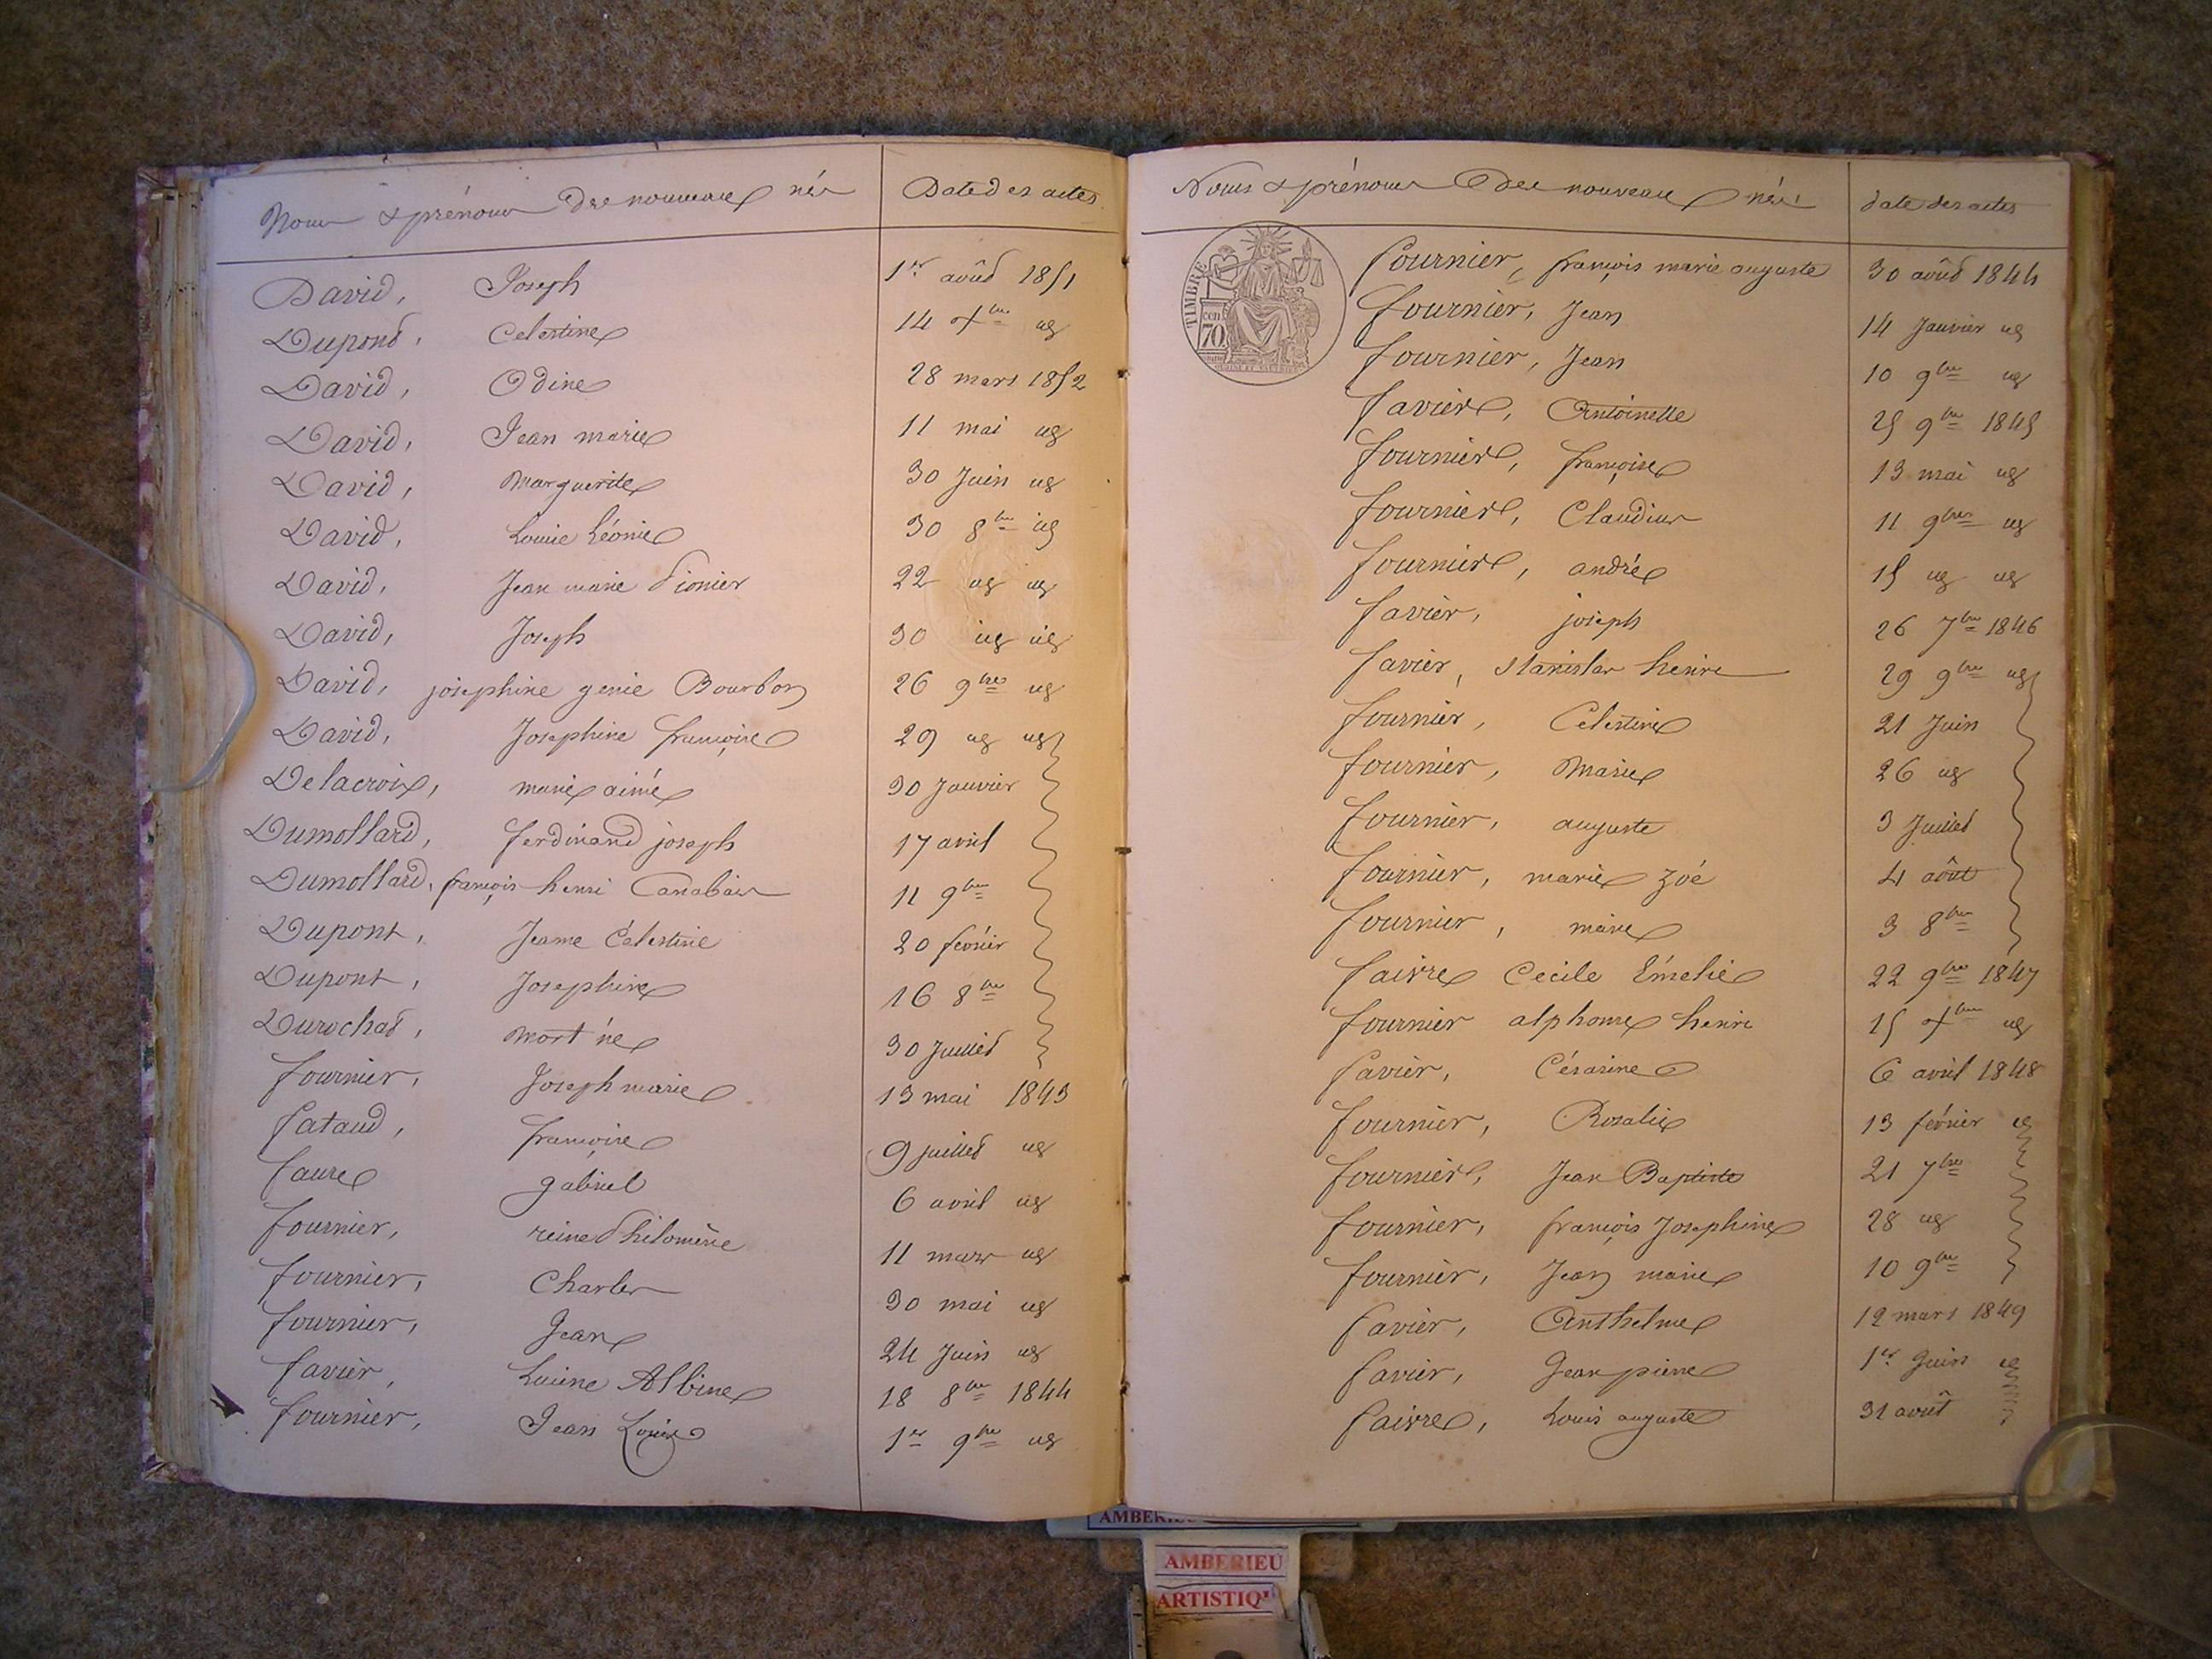 Noms & prénoms des nouveaux nés Date des actes
David, Joseph 1er août 1851
Dupond, Celestine 14 Xbre id
David, Odine 28 mars 1852
David, Jean marie 11 mai id
David, Marguerite 30 Juin id
David, Louise Léonie 30 8bre id
David, Jean marie 22 id id
David, Joseph 30 id id
David, josephine genie Bourbon 26 9bres id
David, Josephine françoise 29 id id
Delacroix, marie aimé 30 Janvier
Dumollard, ferdinand joseph 17 avril
Dumollard, françois henri 11 9bre
Dupont, Jeanne Célestine 20 fevrier
Dupont, Josephine 16 8bre
Durochat, Mort né 30 Juillet
fournier, Joseph marie 13 mai 1843
fataud, françoise 9 juillet id
faure gabriel 6 avril id
fournier, reine Philomène 11 mars id
fournier, Charles 30 mai id
fournier, Jean 24 Juin id
favier, Albine 18 8bre 1844
fournier, Jean Louis 1er 9bre id
Noms & prénoms des nouveaux nés date des actes
TIMBRE
70
fournier, françois marie auguste 30 août 1844
fournier, Jean 14 Janvier id
fournier, Jean 10 9bre id
favier, Antoinette 25 9bre 1845
fournier, françoise 13 mai id
fournier, Claudius 11 9bres id
fournier, andré 15 id id
favier, joseph 26 7bre 1846
favier, stanislas henri 29 9bre id
fournier, Celestine 21 Juin
fournier, Marie 26 id
fournier, auguste 3 Juillet
fournier, marie zoé 4 août
fournier, marie 3 8bre
faivre Cecile Émelie 22 9bre 1847
fournier alphonse henri 15 Xbre id
favier, Césarine 6 avril 1848
fournier, Rosalie 13 février id
fournier, Jean Baptiste 21 7bre
fournier, françois Josephine 28 id
fournier, Jean marie 10 9bre
favier, Anthelme 12 mars 1849
favier, Jean pierre 1er Juin id
faivre, Louis auguste 31 août
AMBERIEU
ARTISTIQ